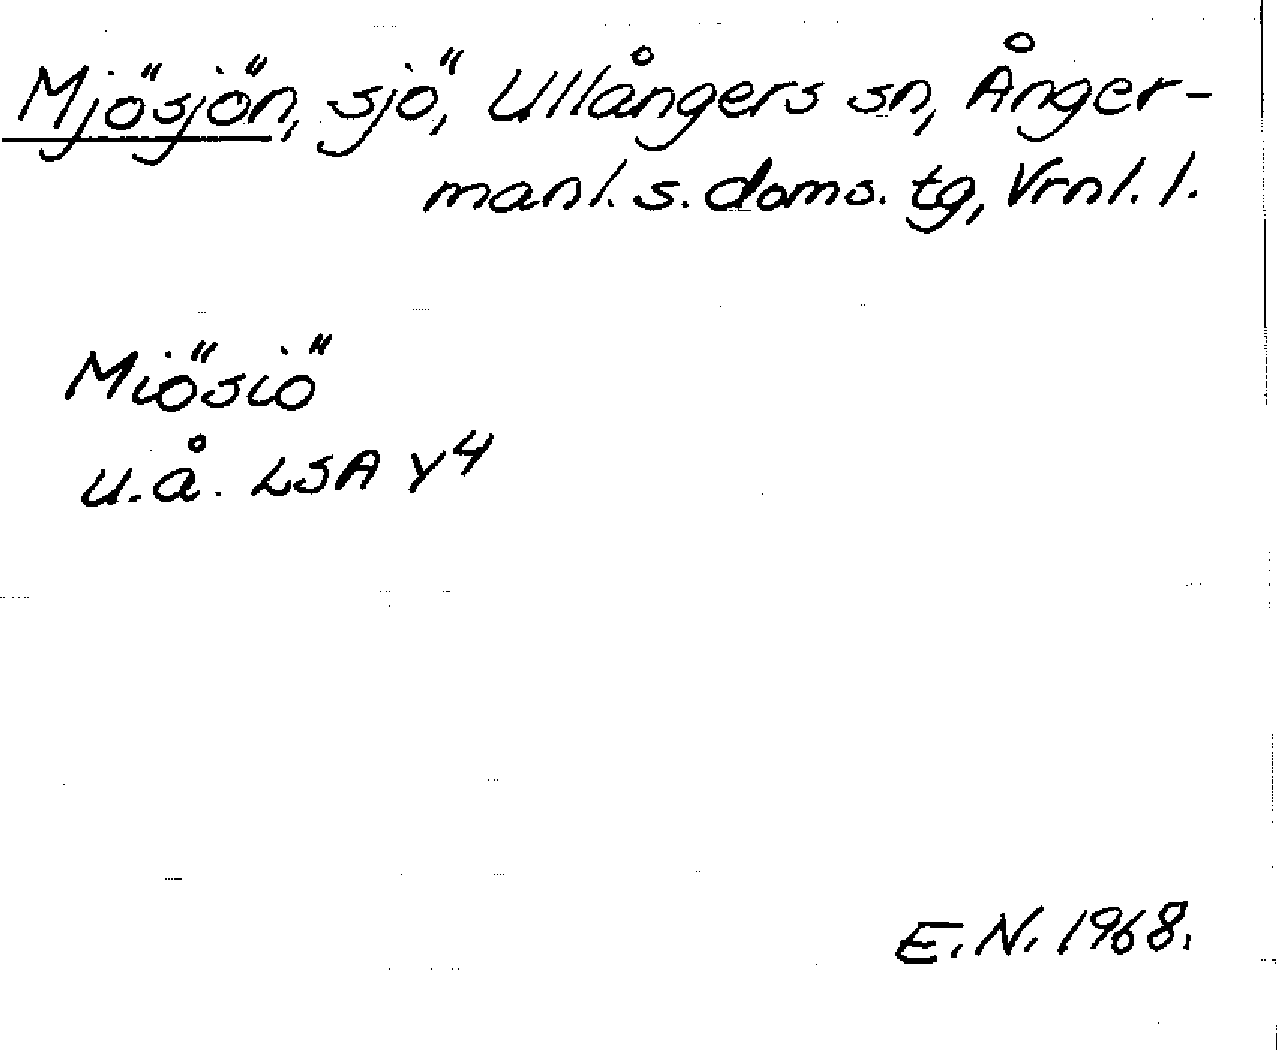 Mjösjön, sjö, Ullångers sn, Ånger-
manl. s. doms. tg, Vrnl. l.
Miösiö
u.å. LSA Y4
E.N. 1968.